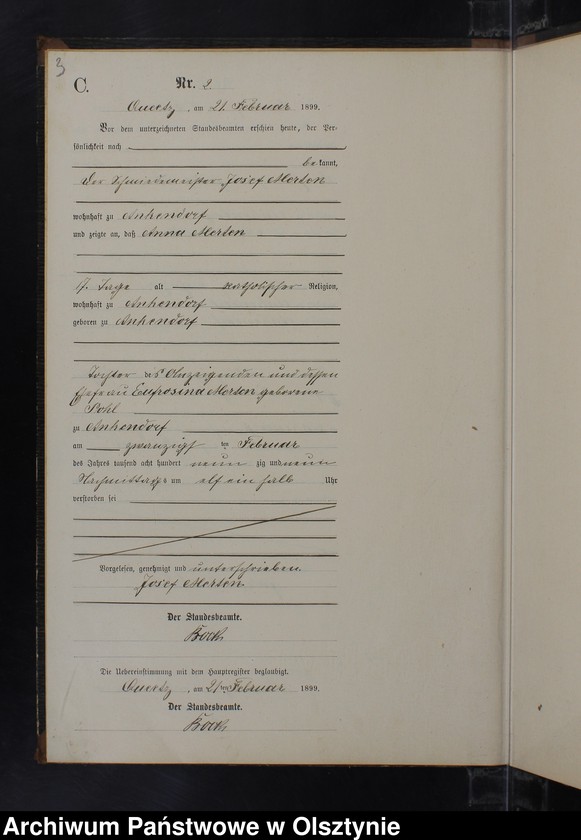 3
C.
Nr. 2.
Queetz, am 21. Februar 1899.
Vor dem unterzeichneten Standesbeamten erschien heute, der Per-
sönlichkeit nach
be kannt,
der Schmiedemeister Josef Merten
wohnhaft zu Ankendorf
und zeigte an, daß Anna Merten
7. Tage alt katholischer Religion,
wohnhaft zu Ankendorf
geboren zu Ankendorf
Tochter des Anzeigenden und dessen
Ehefrau Eufrosina Merten geborene
Pohl
zu Ankendorf
am zwanzigst ten Februar
des Jahres tausend acht hundert neun zig und neun
Nachmittags um elf ein halb Uhr
verstorben sei
Vorgelesen, genehmigt und unterschrieben.
Josef Merten.
Der Standesbeamte.
Die Uebereinstimmung mit dem Hauptregister beglaubigt.
Queetz, am 21ten Februar 1899.
Der Standesbeamte.
Archiwum Państwowe w Olsztynie